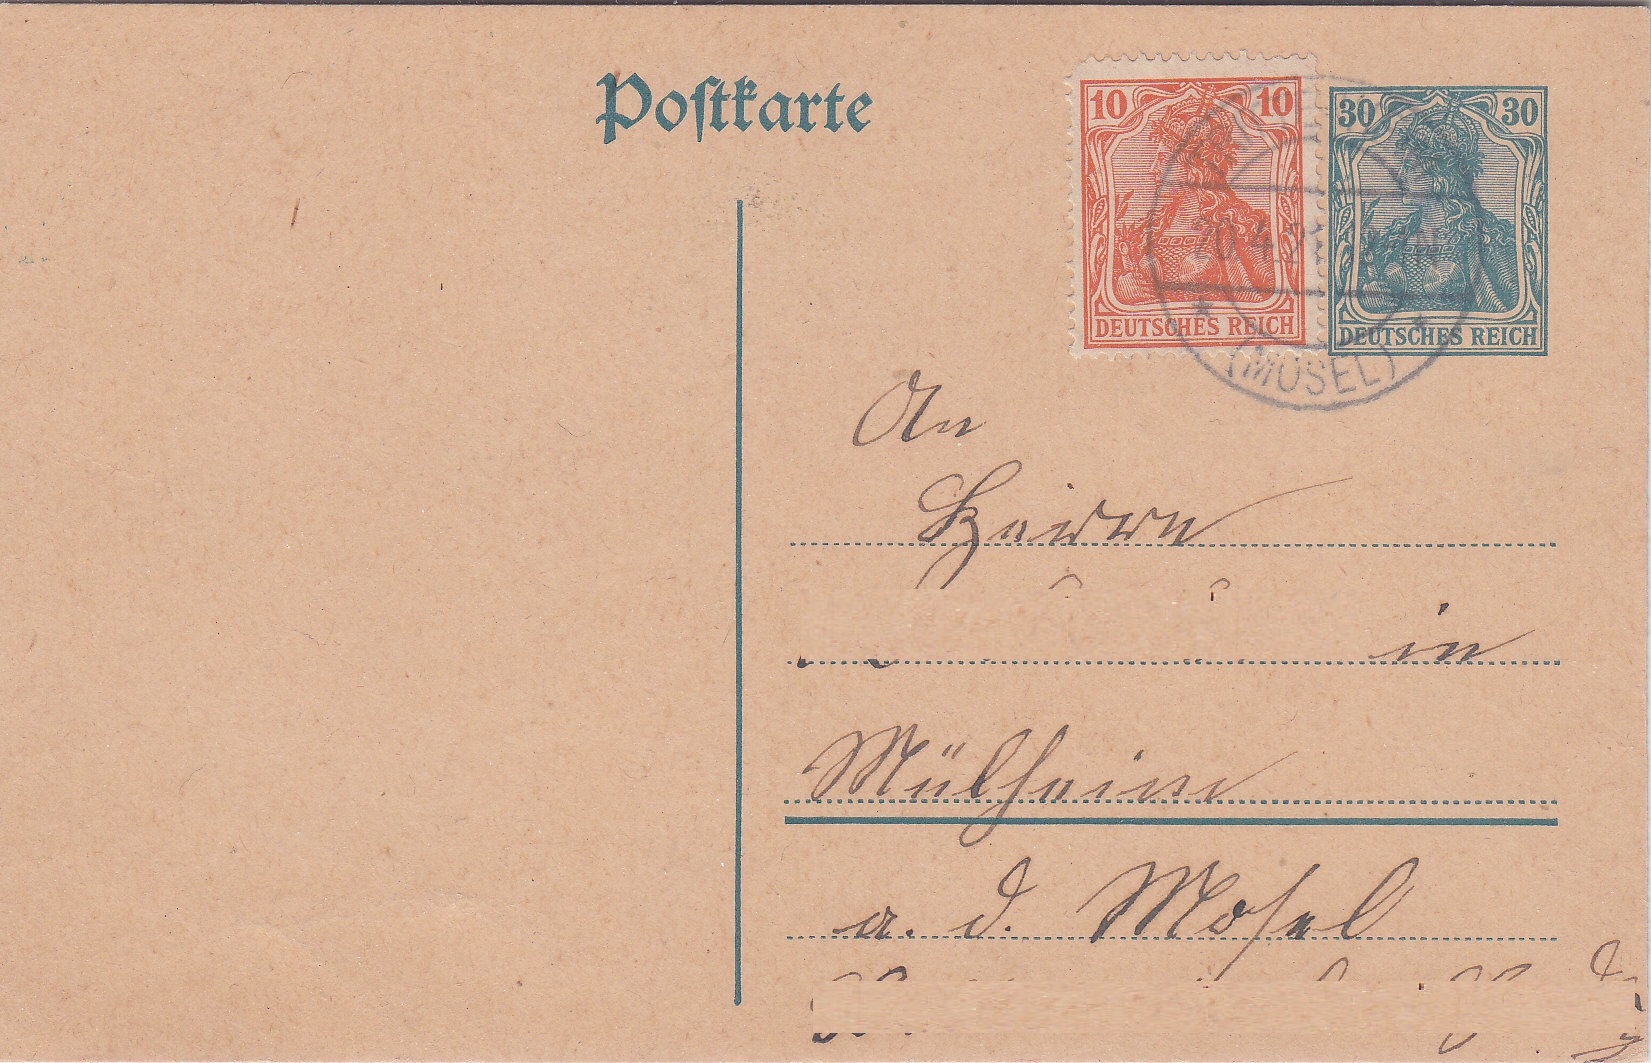 Postkarte
10 10
DEUTSCHES REICH
30 30
DEUTSCHES REICH
20.4.2
(MOSEL)
An
Herrn
in
Mülheim
a. d. Mosel